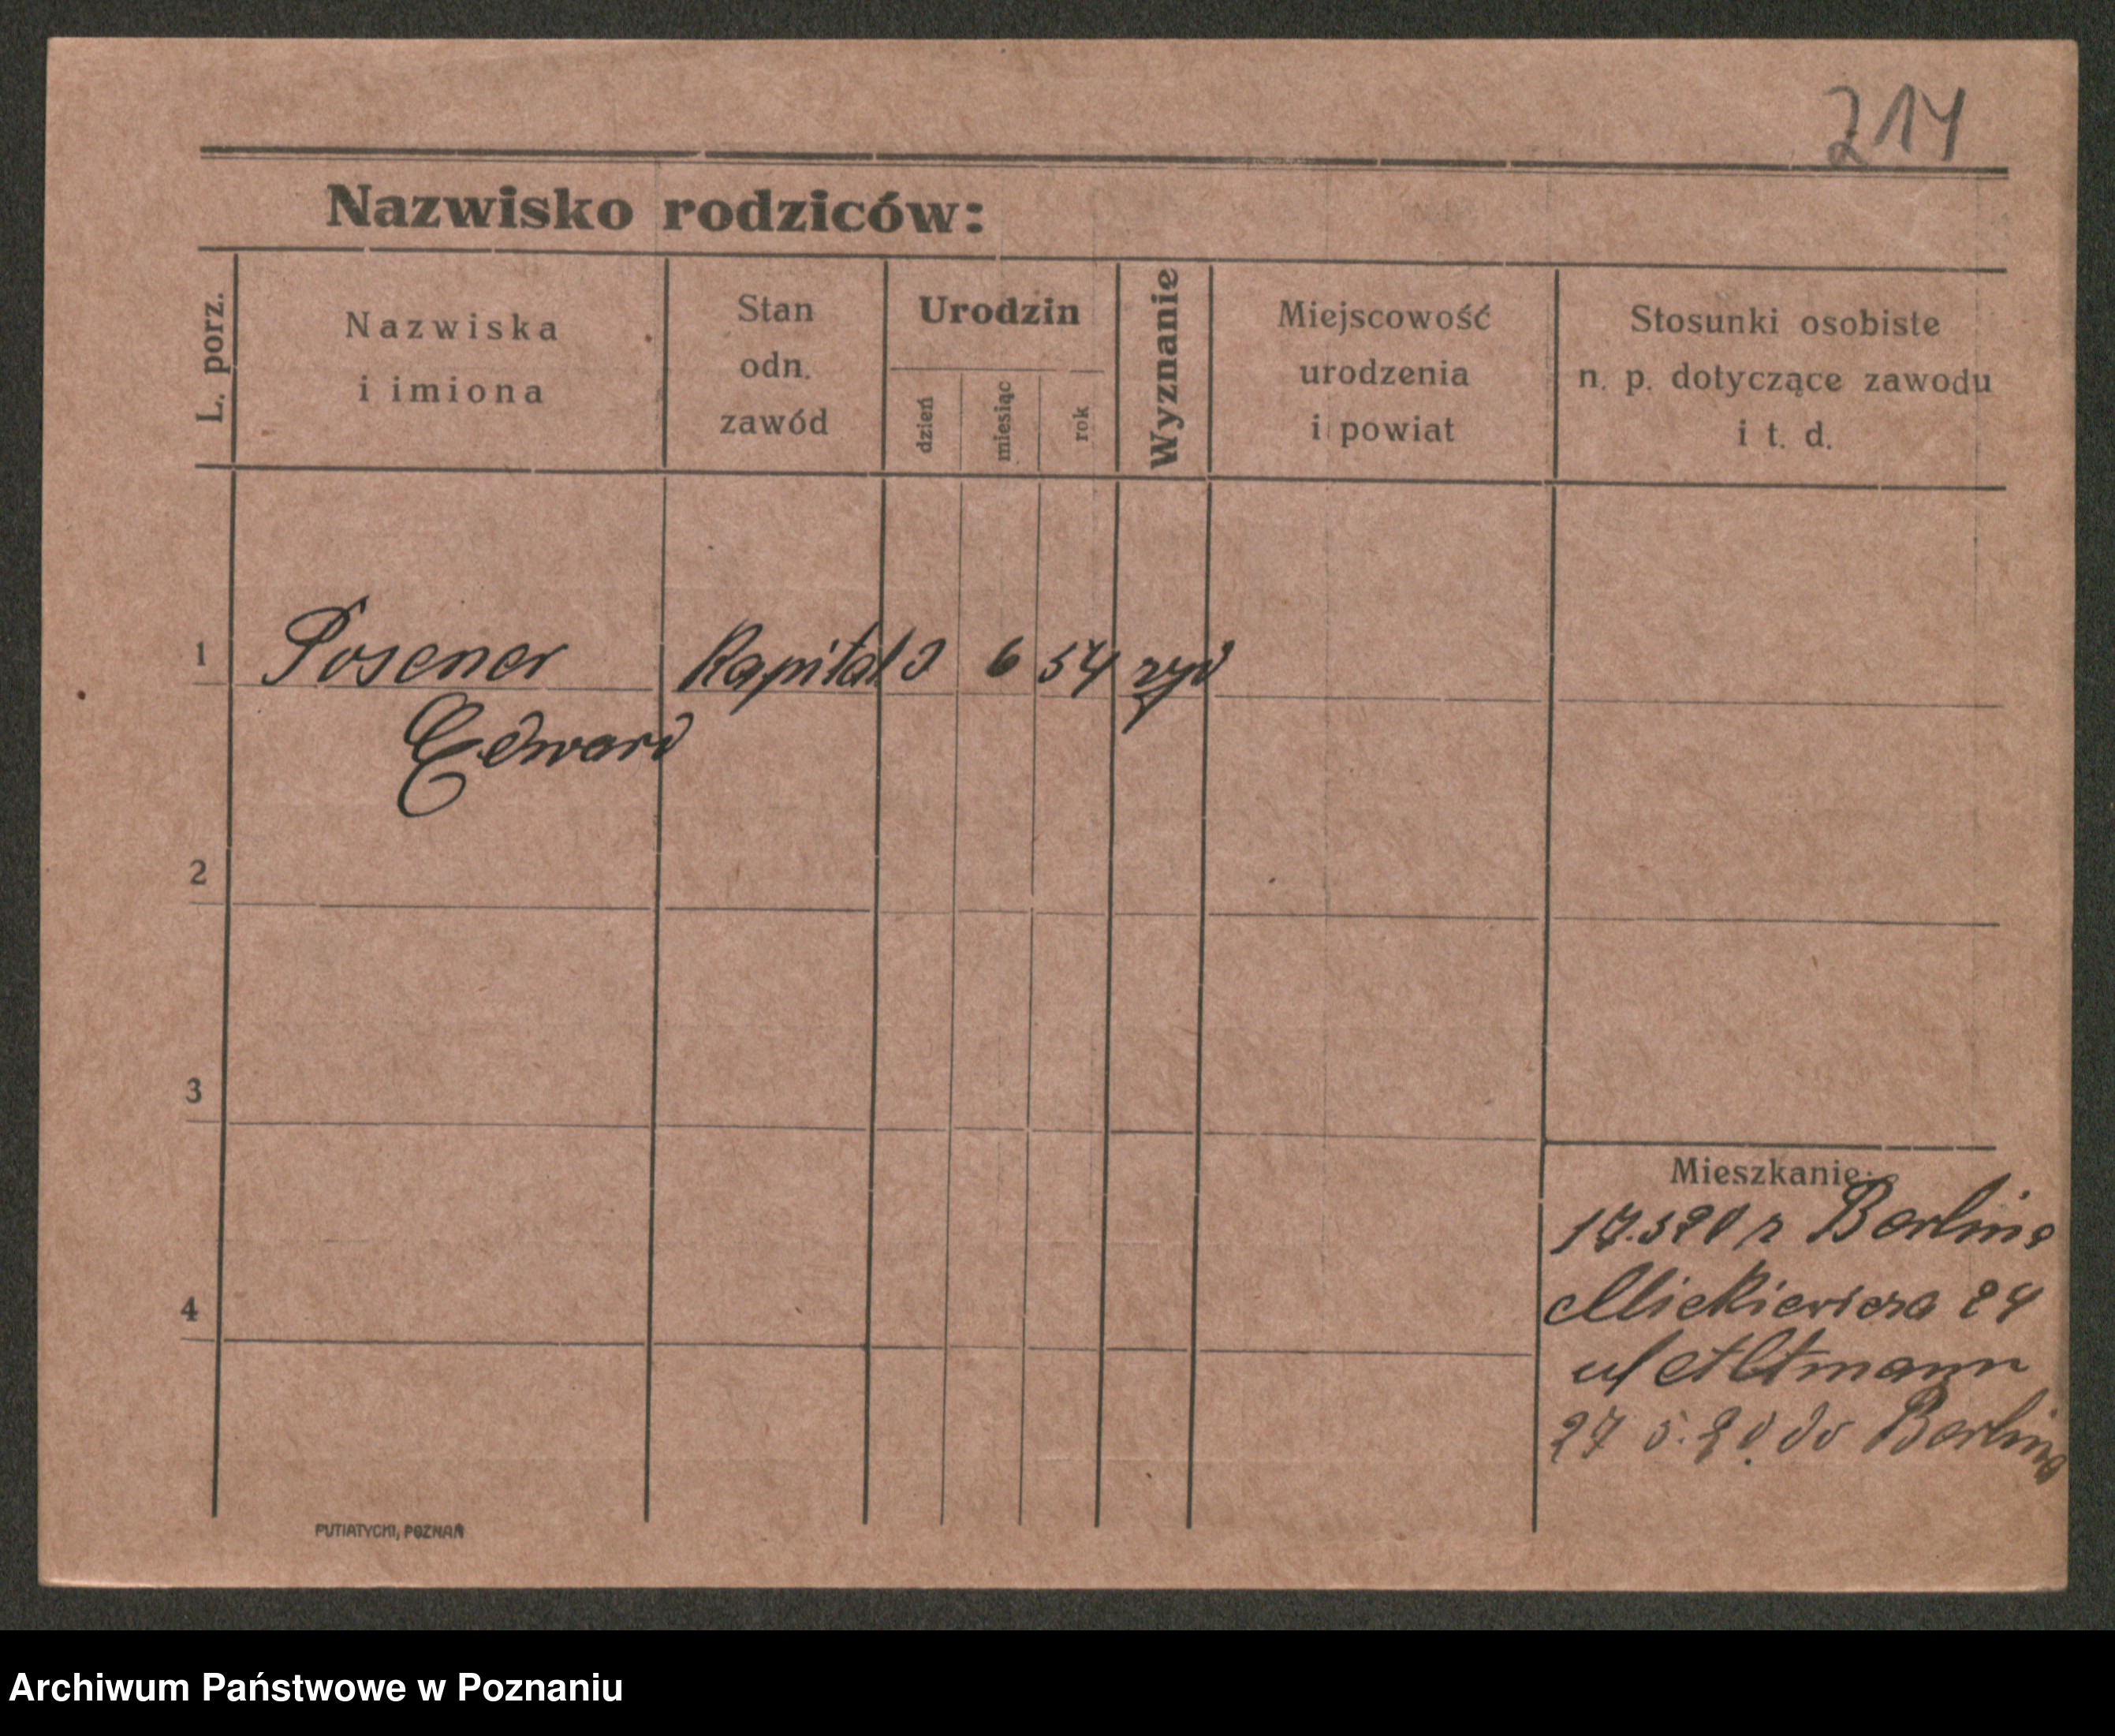 214
Nazwisko rodziców:
L. porz.
Nazwiska
i imiona
Stan
odn.
zawód
Urodzin
dzień
miesiąc
rok
Wyznanie
Miejscowość
urodzenia
i powiat
Stosunki osobiste
n. p. dotyczące zawodu
i t. d.
1 Posener Kapital 6 54 żyd
Edward
2
3
Mieszkanie:
17.5 20 z Berlina
4 Mickiewicza 24
u/ Altmann
27 5. 20 do Berlina
PUTIATYCKI, POZNAŃ
Archiwum Państwowe w Poznaniu